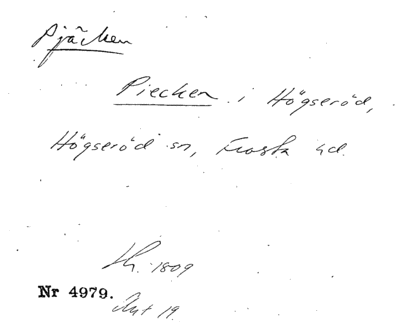 Pjäcken
Piecken i Högseröd,
Högseröd sn, Frosta hd.
1809
Nr 4979.
19